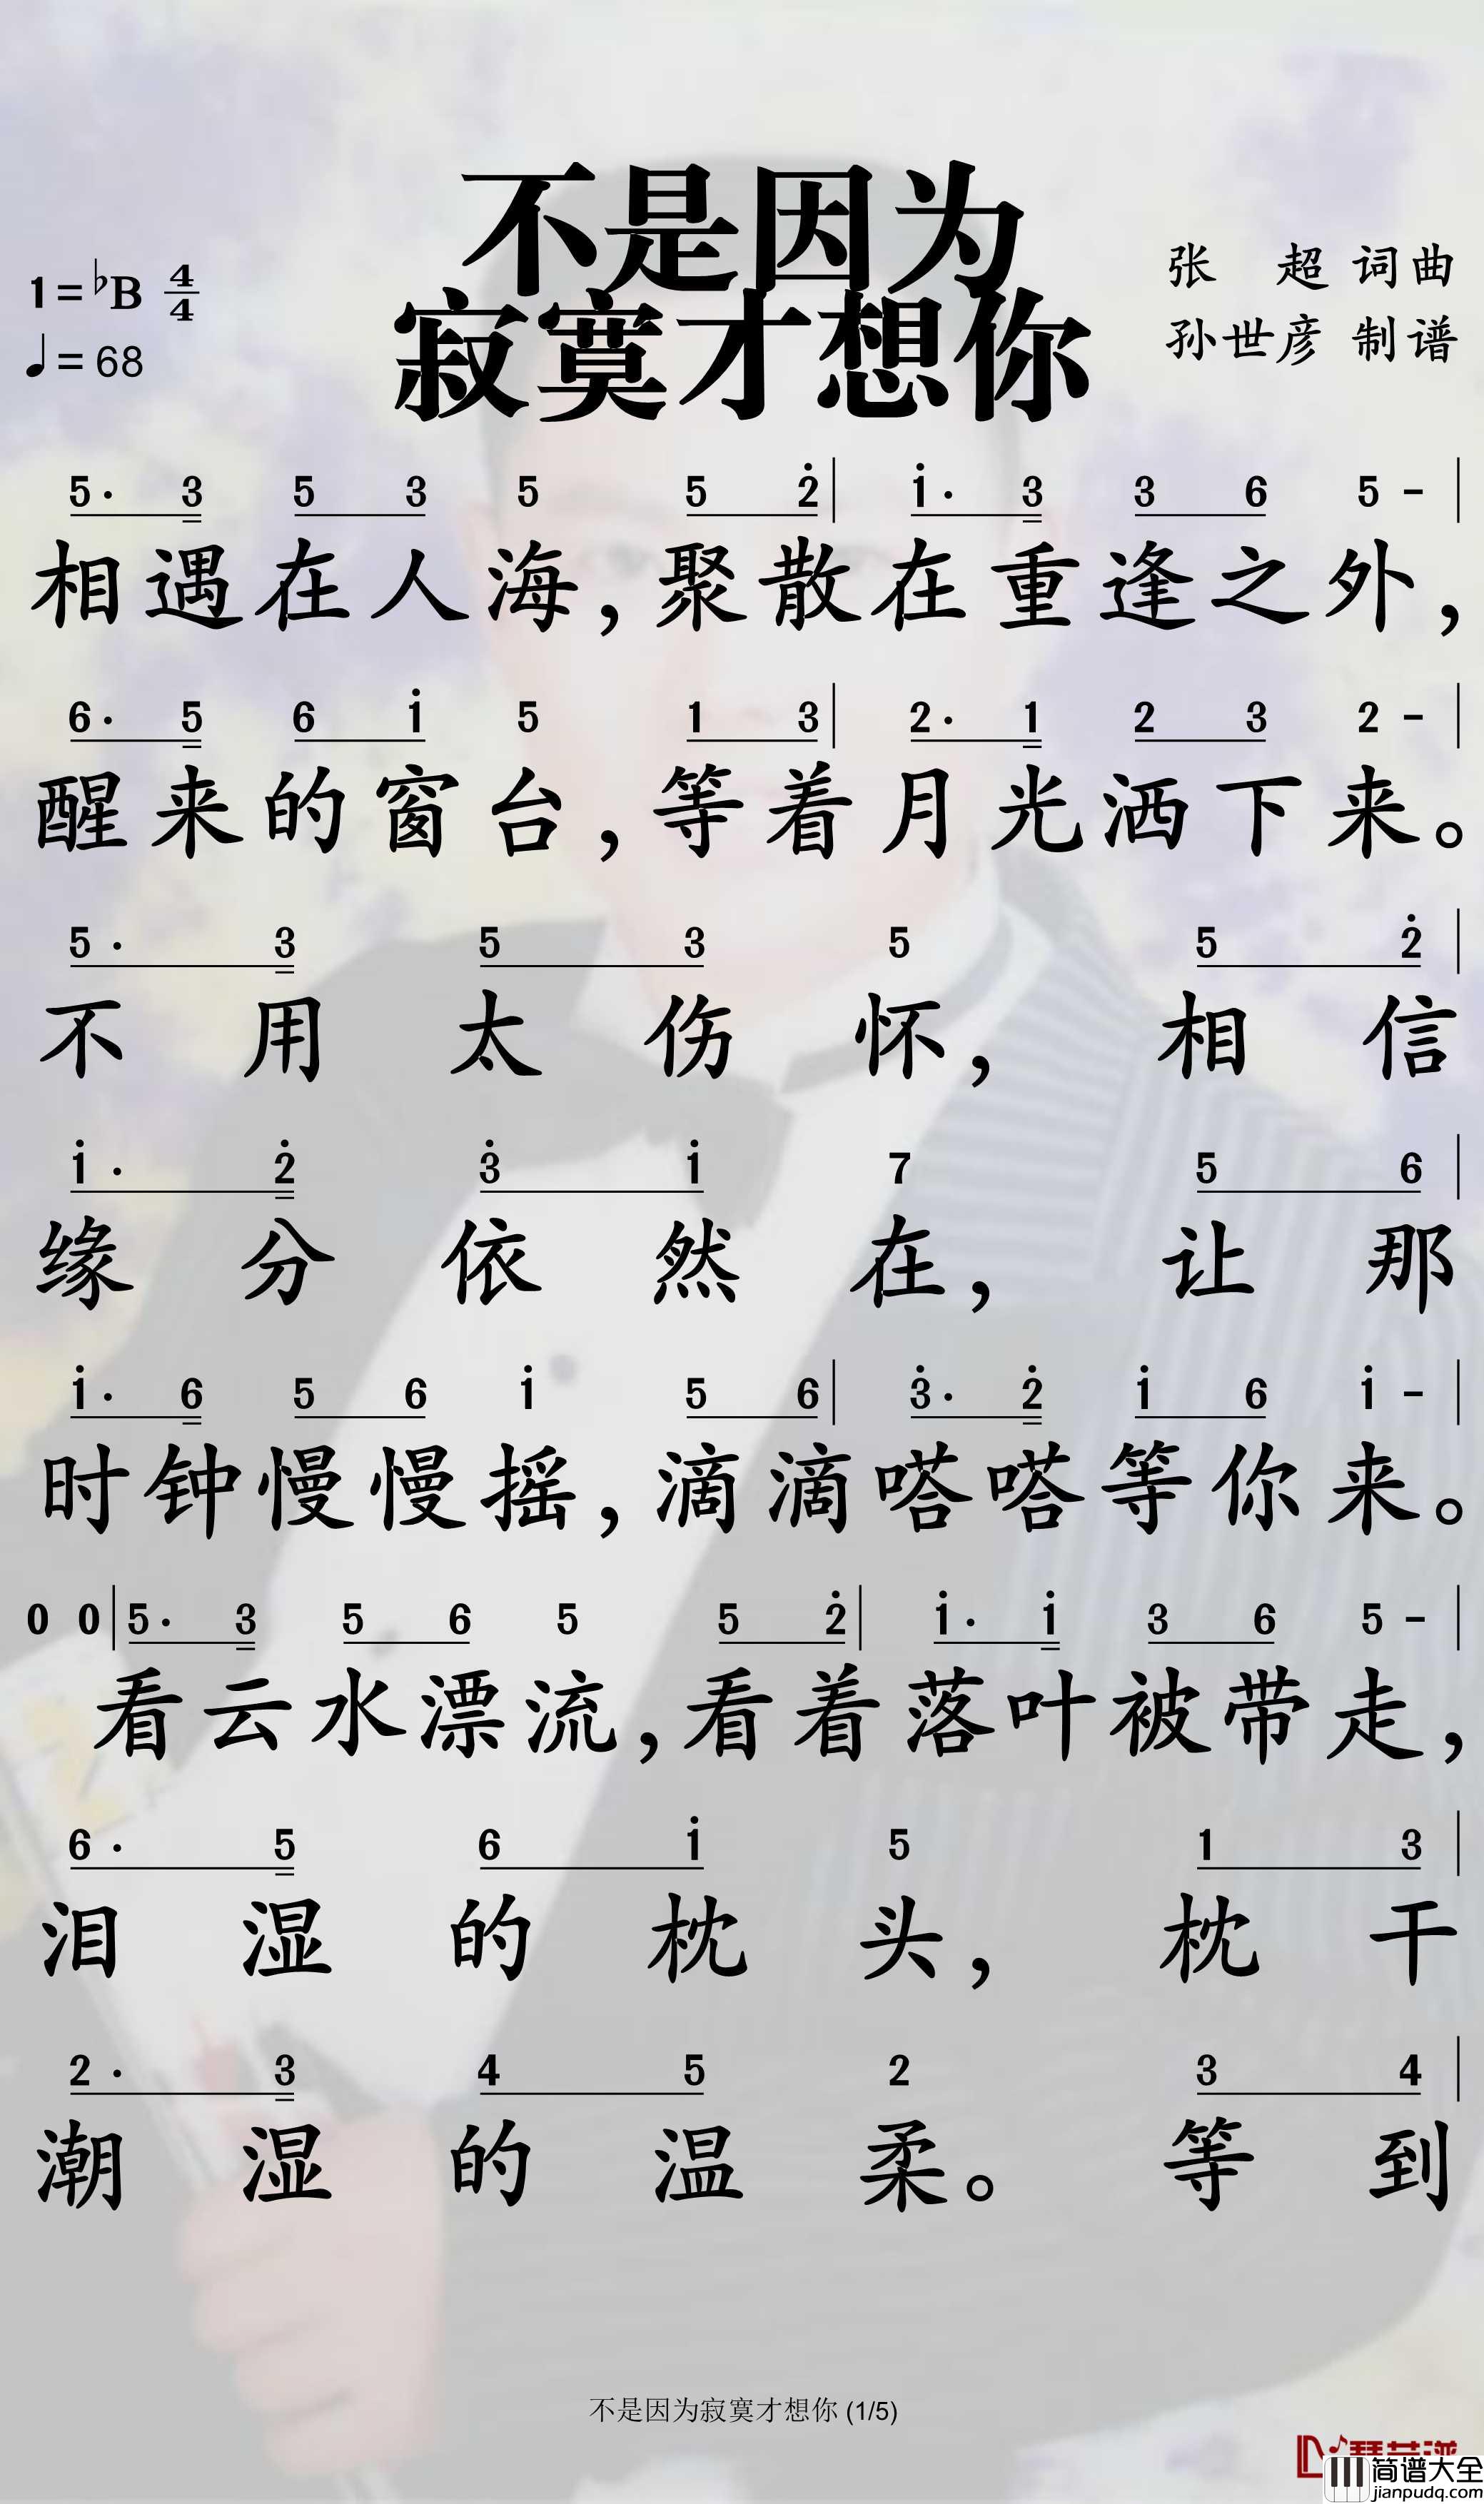 不是因为
寂寞才想你
1=♭B 4/4
♩=68
张 超 词曲
孙世彦 制谱
5· 3 5 3 5 5 2̇ | 1̇· 3 3 6 5 - |
相遇在人海，聚散在重逢之外，
6· 5 6 1̇ 5 1 3 | 2· 1 2 3 2 - |
醒来的窗台，等着月光洒下来。
5· 3 5 3 5 5 2̇ |
不用太伤怀，相信
1̇· 2̇ 3̇ 1̇ 7 5 6 |
缘分依然在，让那
1̇· 6 5 6 1̇ 5 6 | 3̇· 2̇ 1̇ 6 1̇ - |
时钟慢慢摇，滴滴嗒嗒等你来。
0 0 | 5· 3 5 6 5 5 2̇ | 1̇· 1̇ 3 6 5 - |
看云水漂流，看着落叶被带走，
6· 5 6 1̇ 5 1 3 |
泪湿的枕头，枕干
2· 3 4 5 2 3 4 |
潮湿的温柔。等到
不是因为寂寞才想你 (1/5)
简谱大全
jianpudq.com